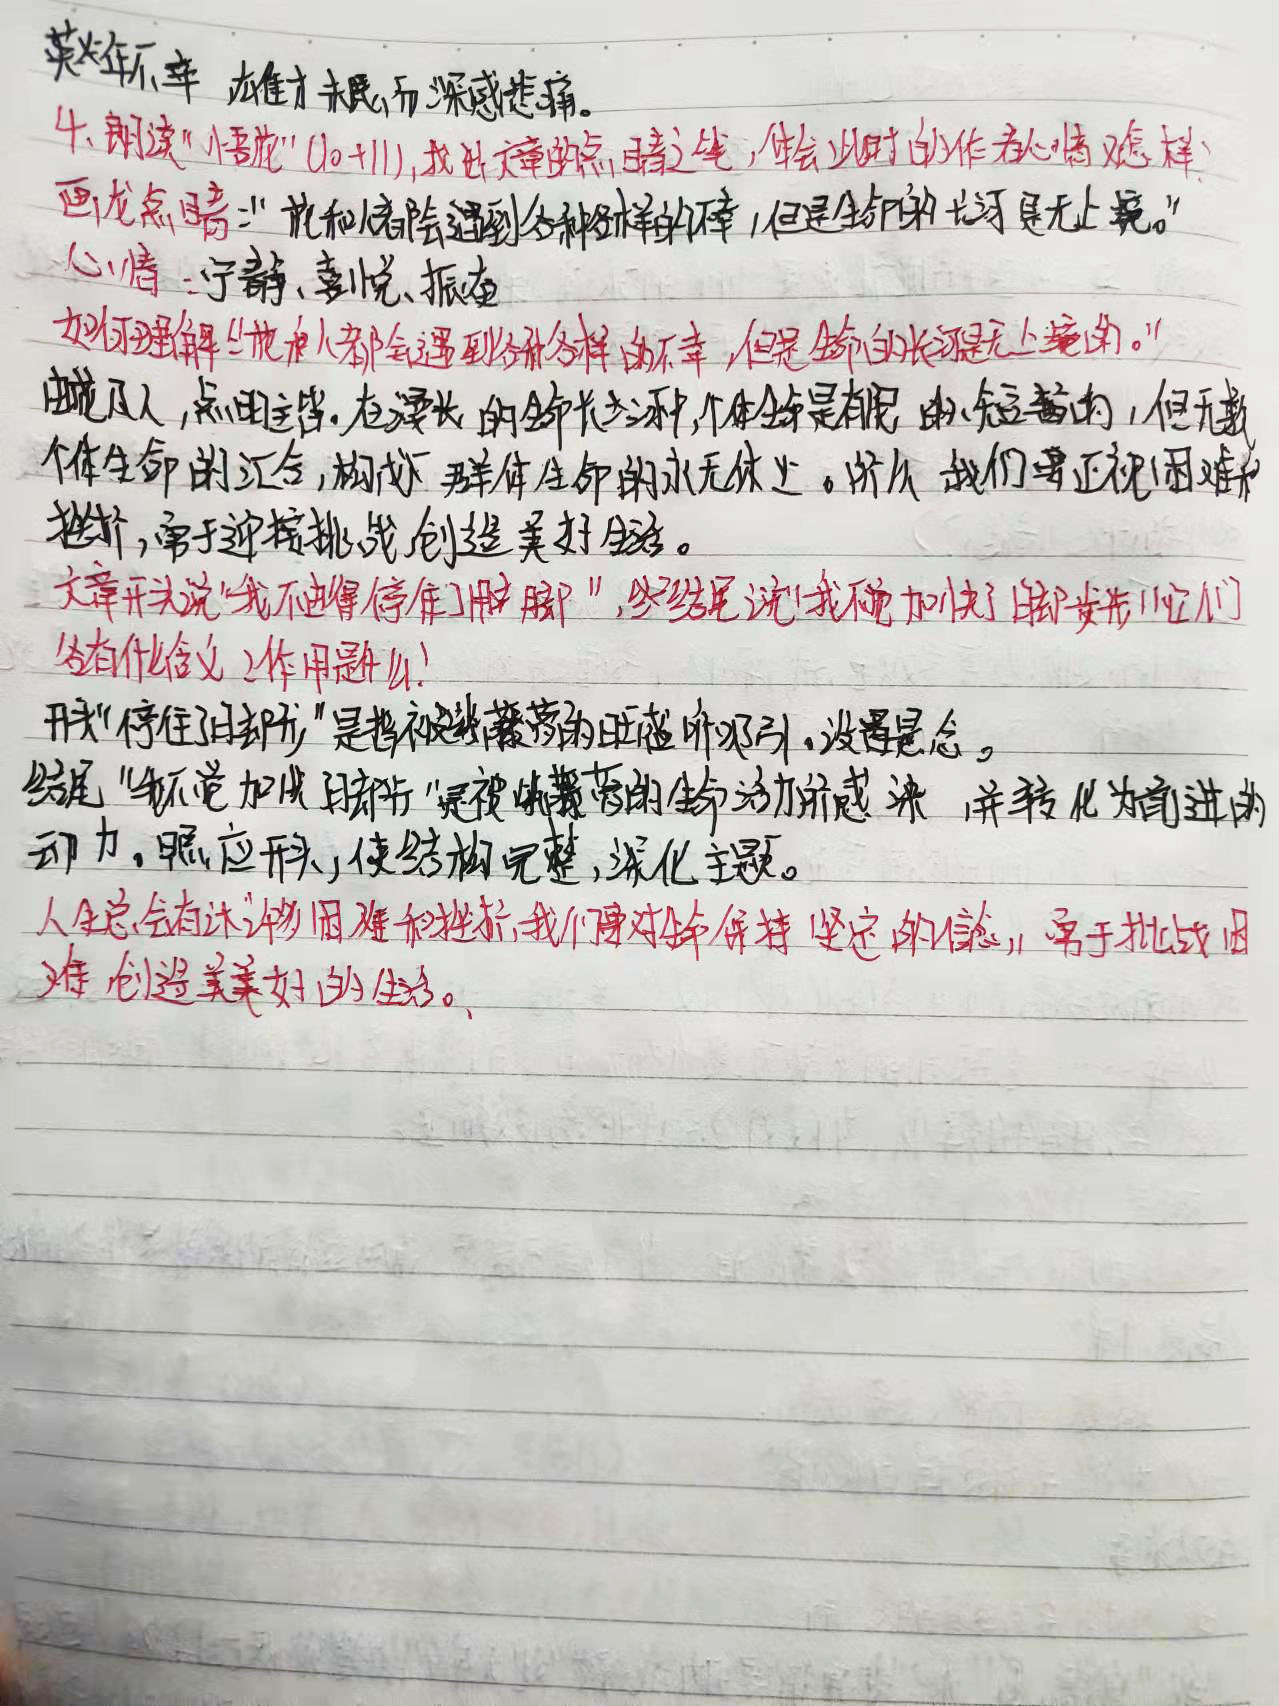 英年不幸 雄才未展,而深感悲痛。
4、朗读“悟花”(10+11),找出文章的点睛之笔,体会此时的作者心情又怎样?
画龙点睛:“花和人都会遇到各种各样的不幸,但是生命的长河是无止境。”
心情:宁静、喜悦、振奋
如何理解“花和人都会遇到各种各样的不幸,但是生命的长河是无止境的。”
由花及人,点明主旨。在漫长的生命长河中,个体生命是有限的、短暂的,但无数
个体生命的汇合,构成了群体生命的永无休止。所以我们要正视困难和
挫折,勇于迎接挑战,创造美好生活。
文章开头说“我不由得停住了脚”,结尾说“我不觉加快了脚步”,它们
各有什么含义?作用是什么?
开头“停住了脚步”是指被紫藤萝的旺盛所吸引。设置悬念。
结尾“我不觉加快脚步”是被紫藤萝的生命活力所感染,并转化为前进的
动力。照应开头,使结构完整,深化主题。
人生总会有许多困难和挫折,我们要对生命保持坚定的信念,勇于挑战困
难,创造美好的生活。